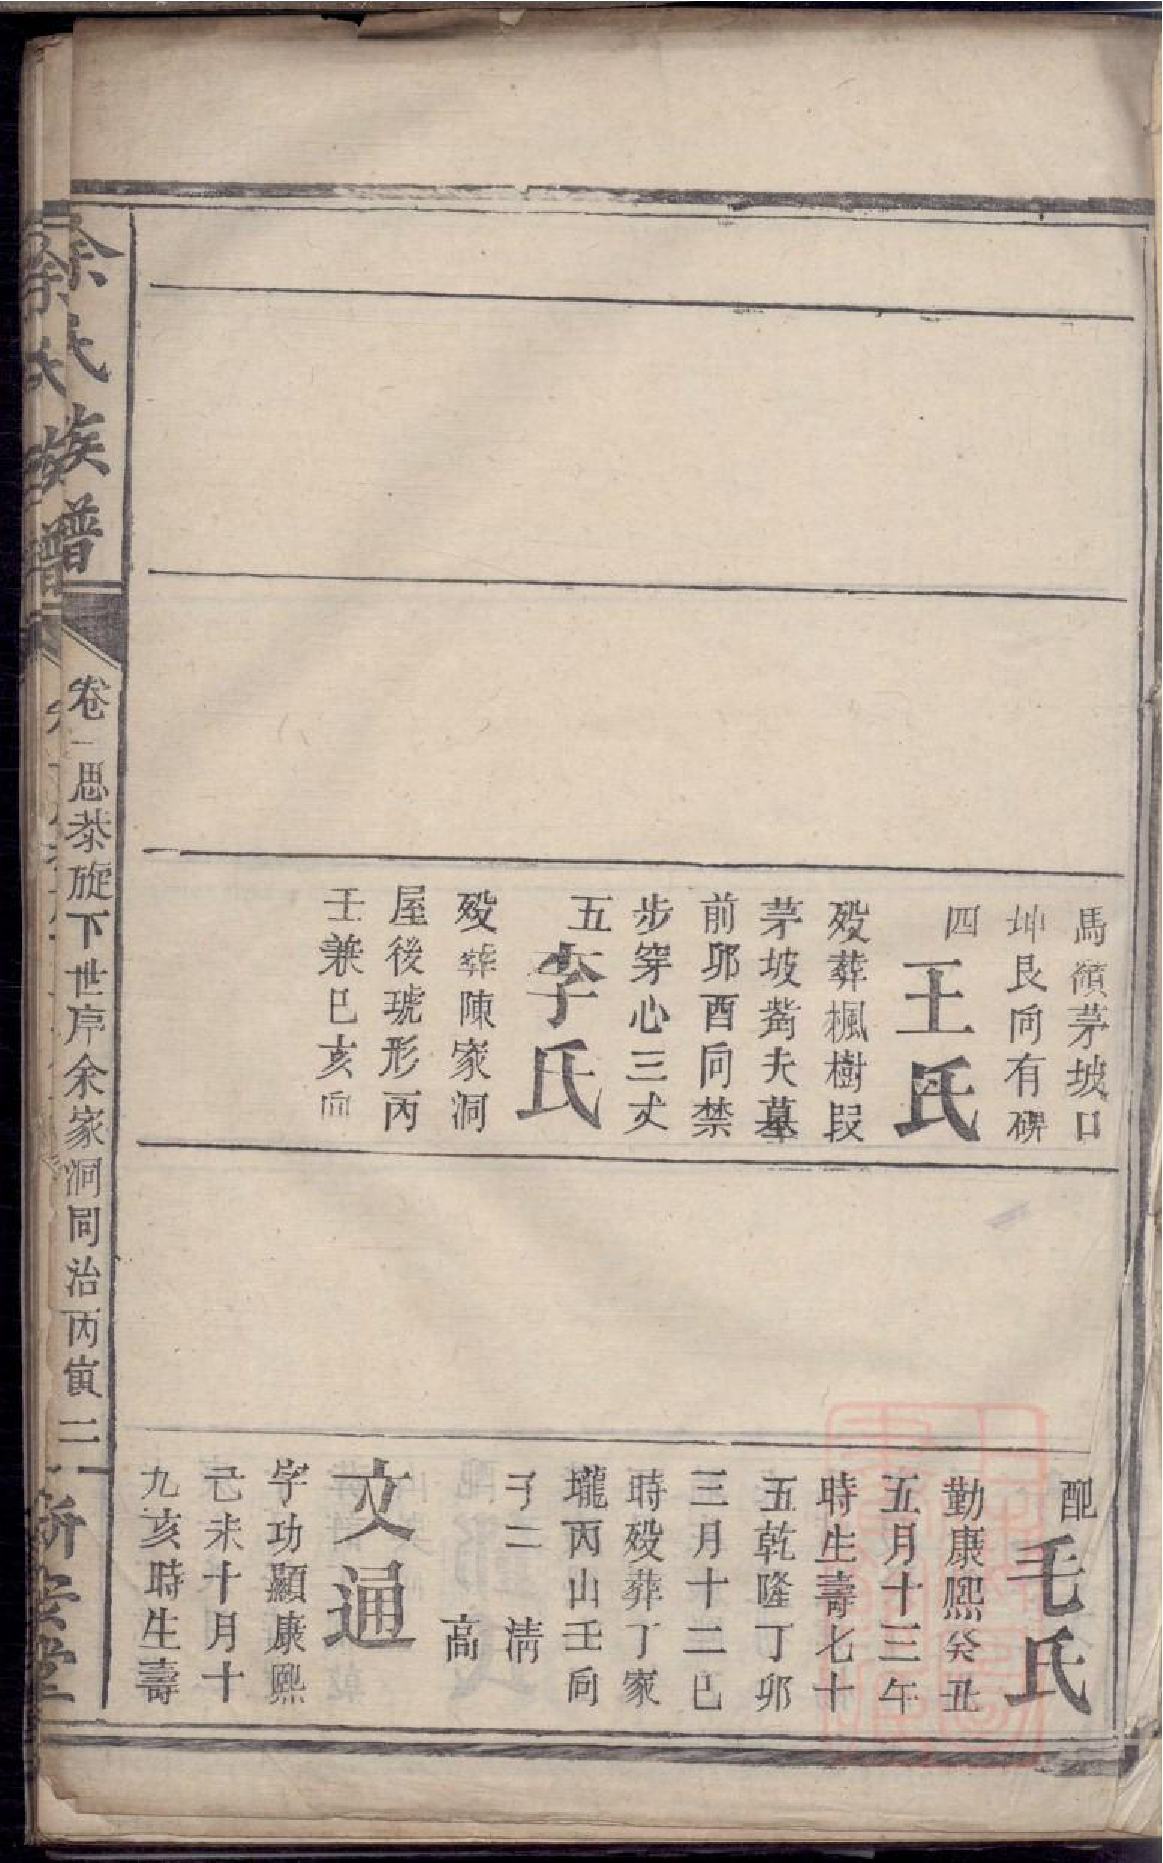 馬嶺茅坡口
坤艮向有碑
四
王氏
殁葬楓樹段
茅坡嵩夫墓
前卯酉向禁
步穿心三丈
五
李氏
殁葬陳家洞
屋後琥形丙
壬兼巳亥向
配
毛氏
勤康熙癸丑
五月十三午
時生壽七十
五乾隆丁卯
三月十二巳
時殁葬丁家
壠丙山壬向
子二 清
高
文通
字功顯康熙
己未十月十
九亥時生壽
余氏族譜
卷一思恭旋下世序余家洞同治丙寅
三
新安堂